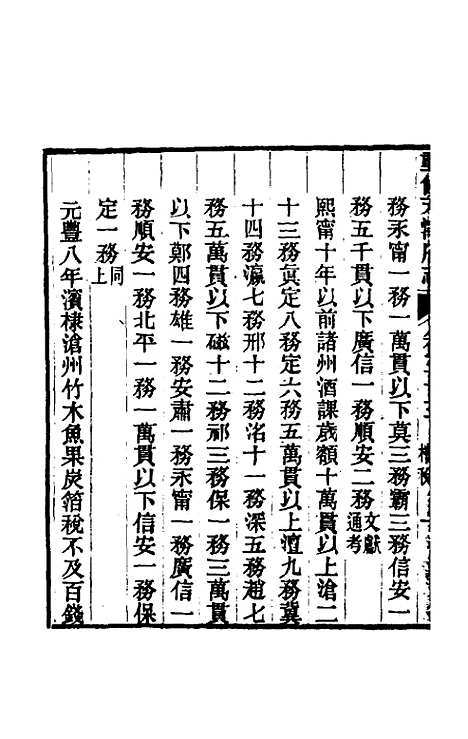 務永甯一務一萬貫以下莫三務霸三務信安一
務五千貫以下廣信一務順安二務文獻通考
熙甯十年以前諸州酒課歲額十萬貫以上滄二
十三務真定八務定六務五萬貫以上澶九務冀
十四務瀛七務邢十二務洺十一務深五務趙七
務五萬貫以下磁十二務祁三務保一務三萬貫
以下鄭四務雄一務安肅一務永甯一務廣信一
務順安一務北平一務一萬貫以下信安一務保
定一務同上
元豐八年濱棣滄州竹木魚果炭箔稅不及百錢